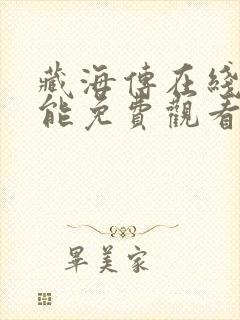 藏海傳在綫
能免費觀看
畢美家